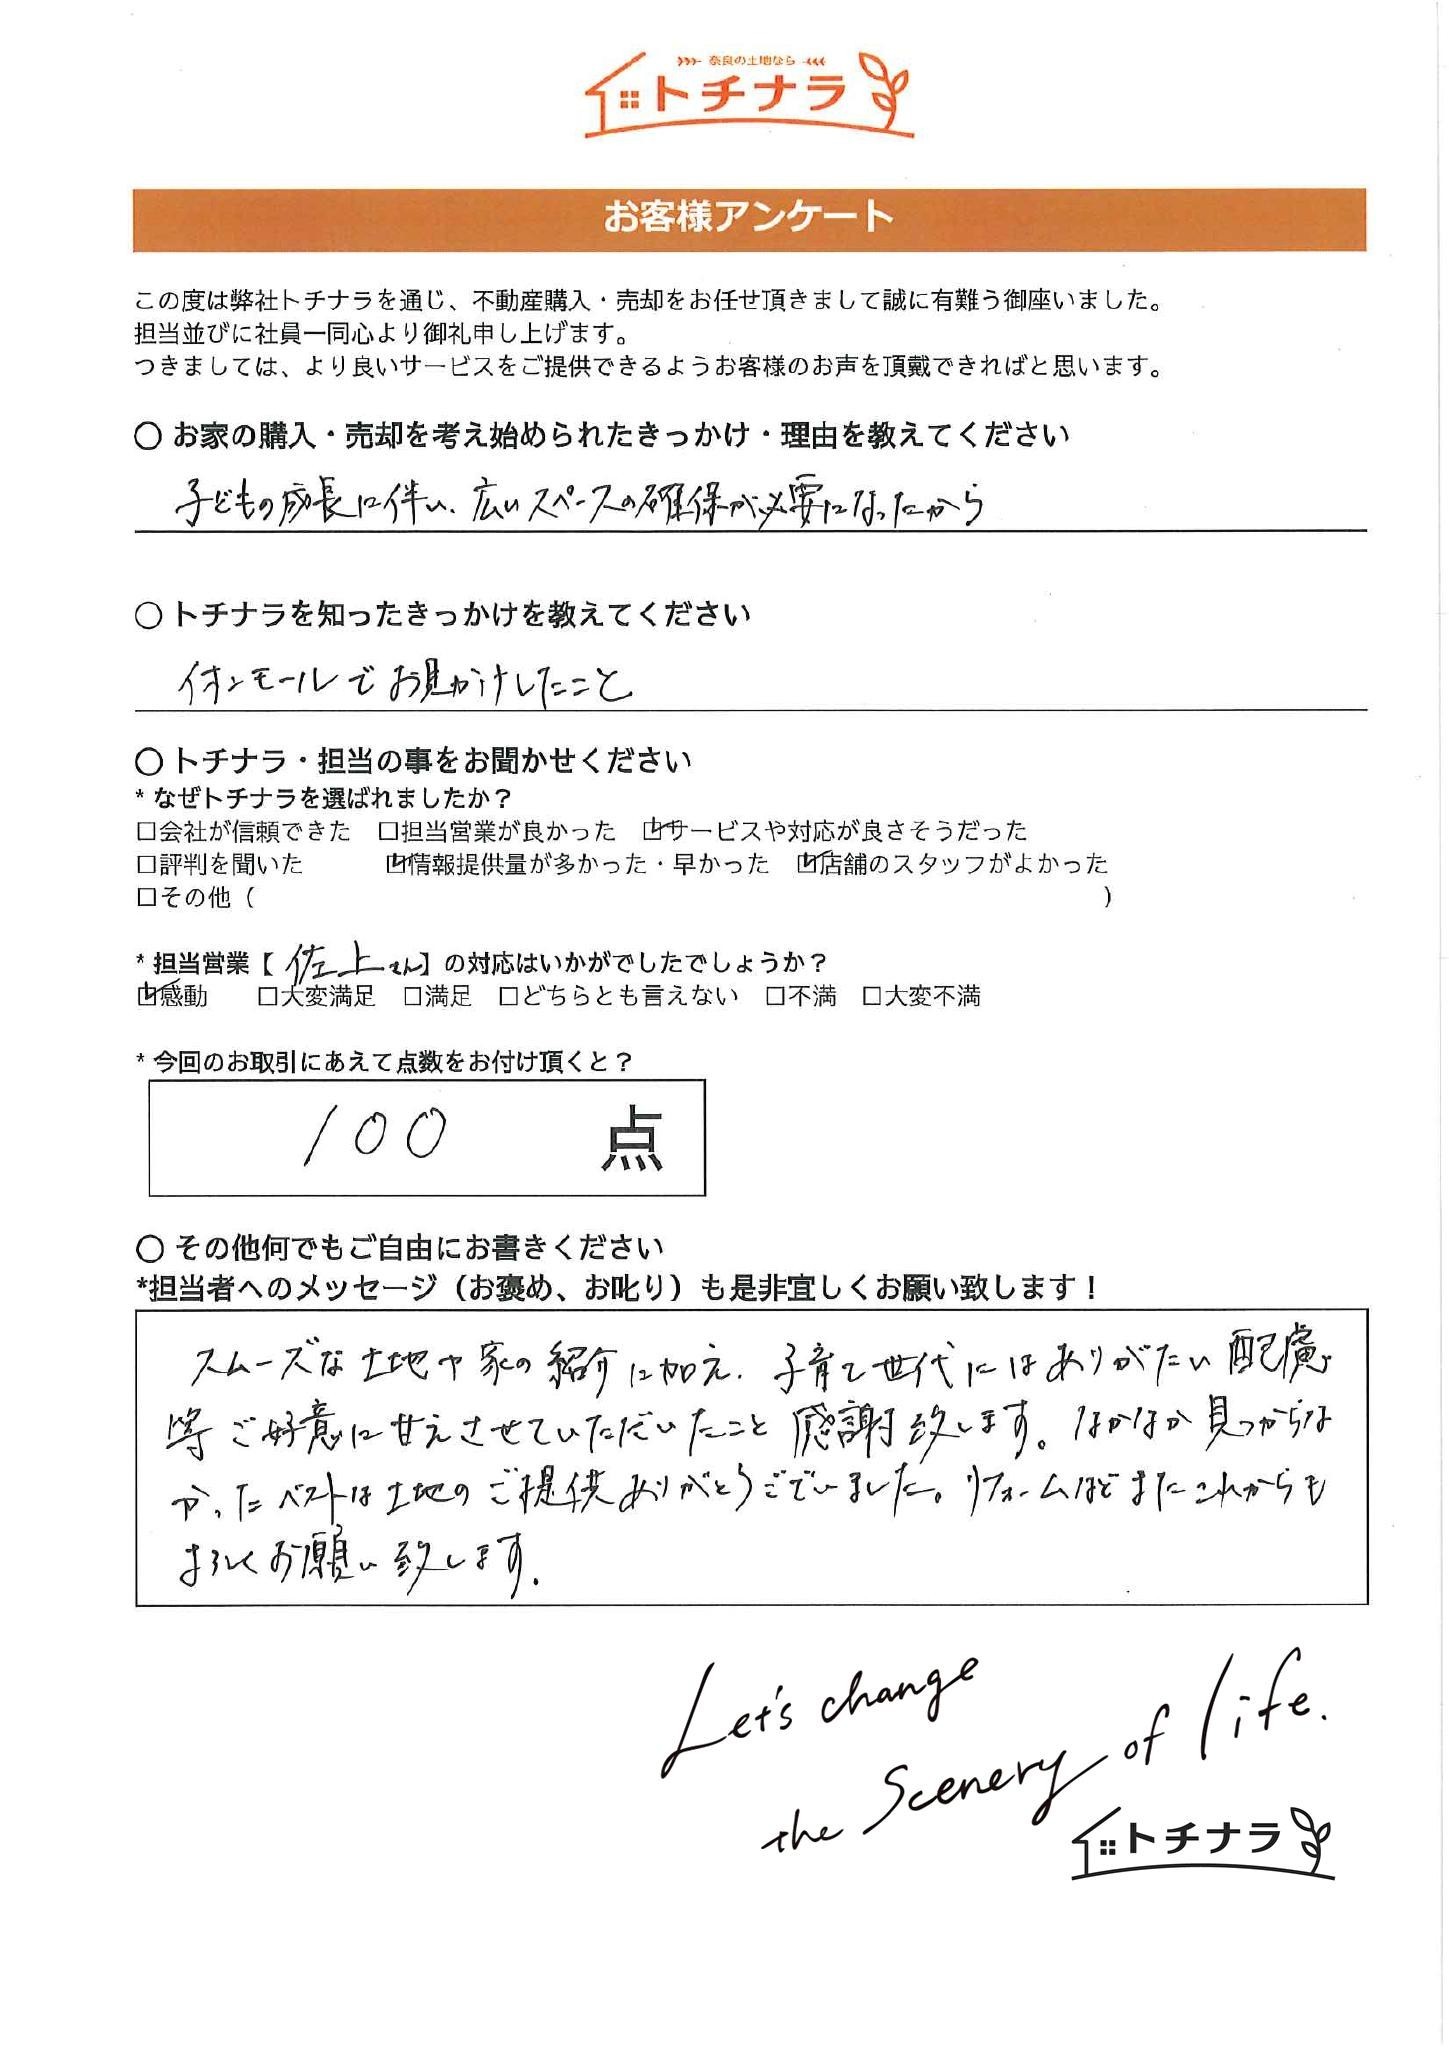 奈良の土地なら
トチナラ
お客様アンケート
この度は弊社トチナラを通じ、不動産購入・売却をお任せ頂きまして誠に有難う御座いました。
担当並びに社員一同心より御礼申し上げます。
つきましては、より良いサービスをご提供できるようお客様のお声を頂戴できればと思います。
○ お家の購入・売却を考え始められたきっかけ・理由を教えてください
子どもの成長に伴い、広いスペースの確保が必要になったから
○ トチナラを知ったきっかけを教えてください
イオンモールでお見かけしたこと
○ トチナラ・担当の事をお聞かせください
* なぜトチナラを選ばれましたか？
□会社が信頼できた □担当営業が良かった ☑サービスや対応が良さそうだった
□評判を聞いた ☑情報提供量が多かった・早かった ☑店舗のスタッフがよかった
□その他（ ）
* 担当営業【 佐上さん】の対応はいかがでしたでしょうか？
☑感動 □大変満足 □満足 □どちらとも言えない □不満 □大変不満
* 今回のお取引にあえて点数をお付け頂くと？
100 点
○ その他何でもご自由にお書きください
*担当者へのメッセージ（お褒め、お叱り）も是非宜しくお願い致します！
スムーズな土地や家の紹介に加え、子育て世代にはありがたい配慮
等ご好意に甘えさせていただいたこと感謝致します。なかなか見つからな
かったベストな土地のご提供ありがとうございました。リフォームなどまたこれからも
よろしくお願い致します。
Let's change
the Scenery of life.
トチナラ